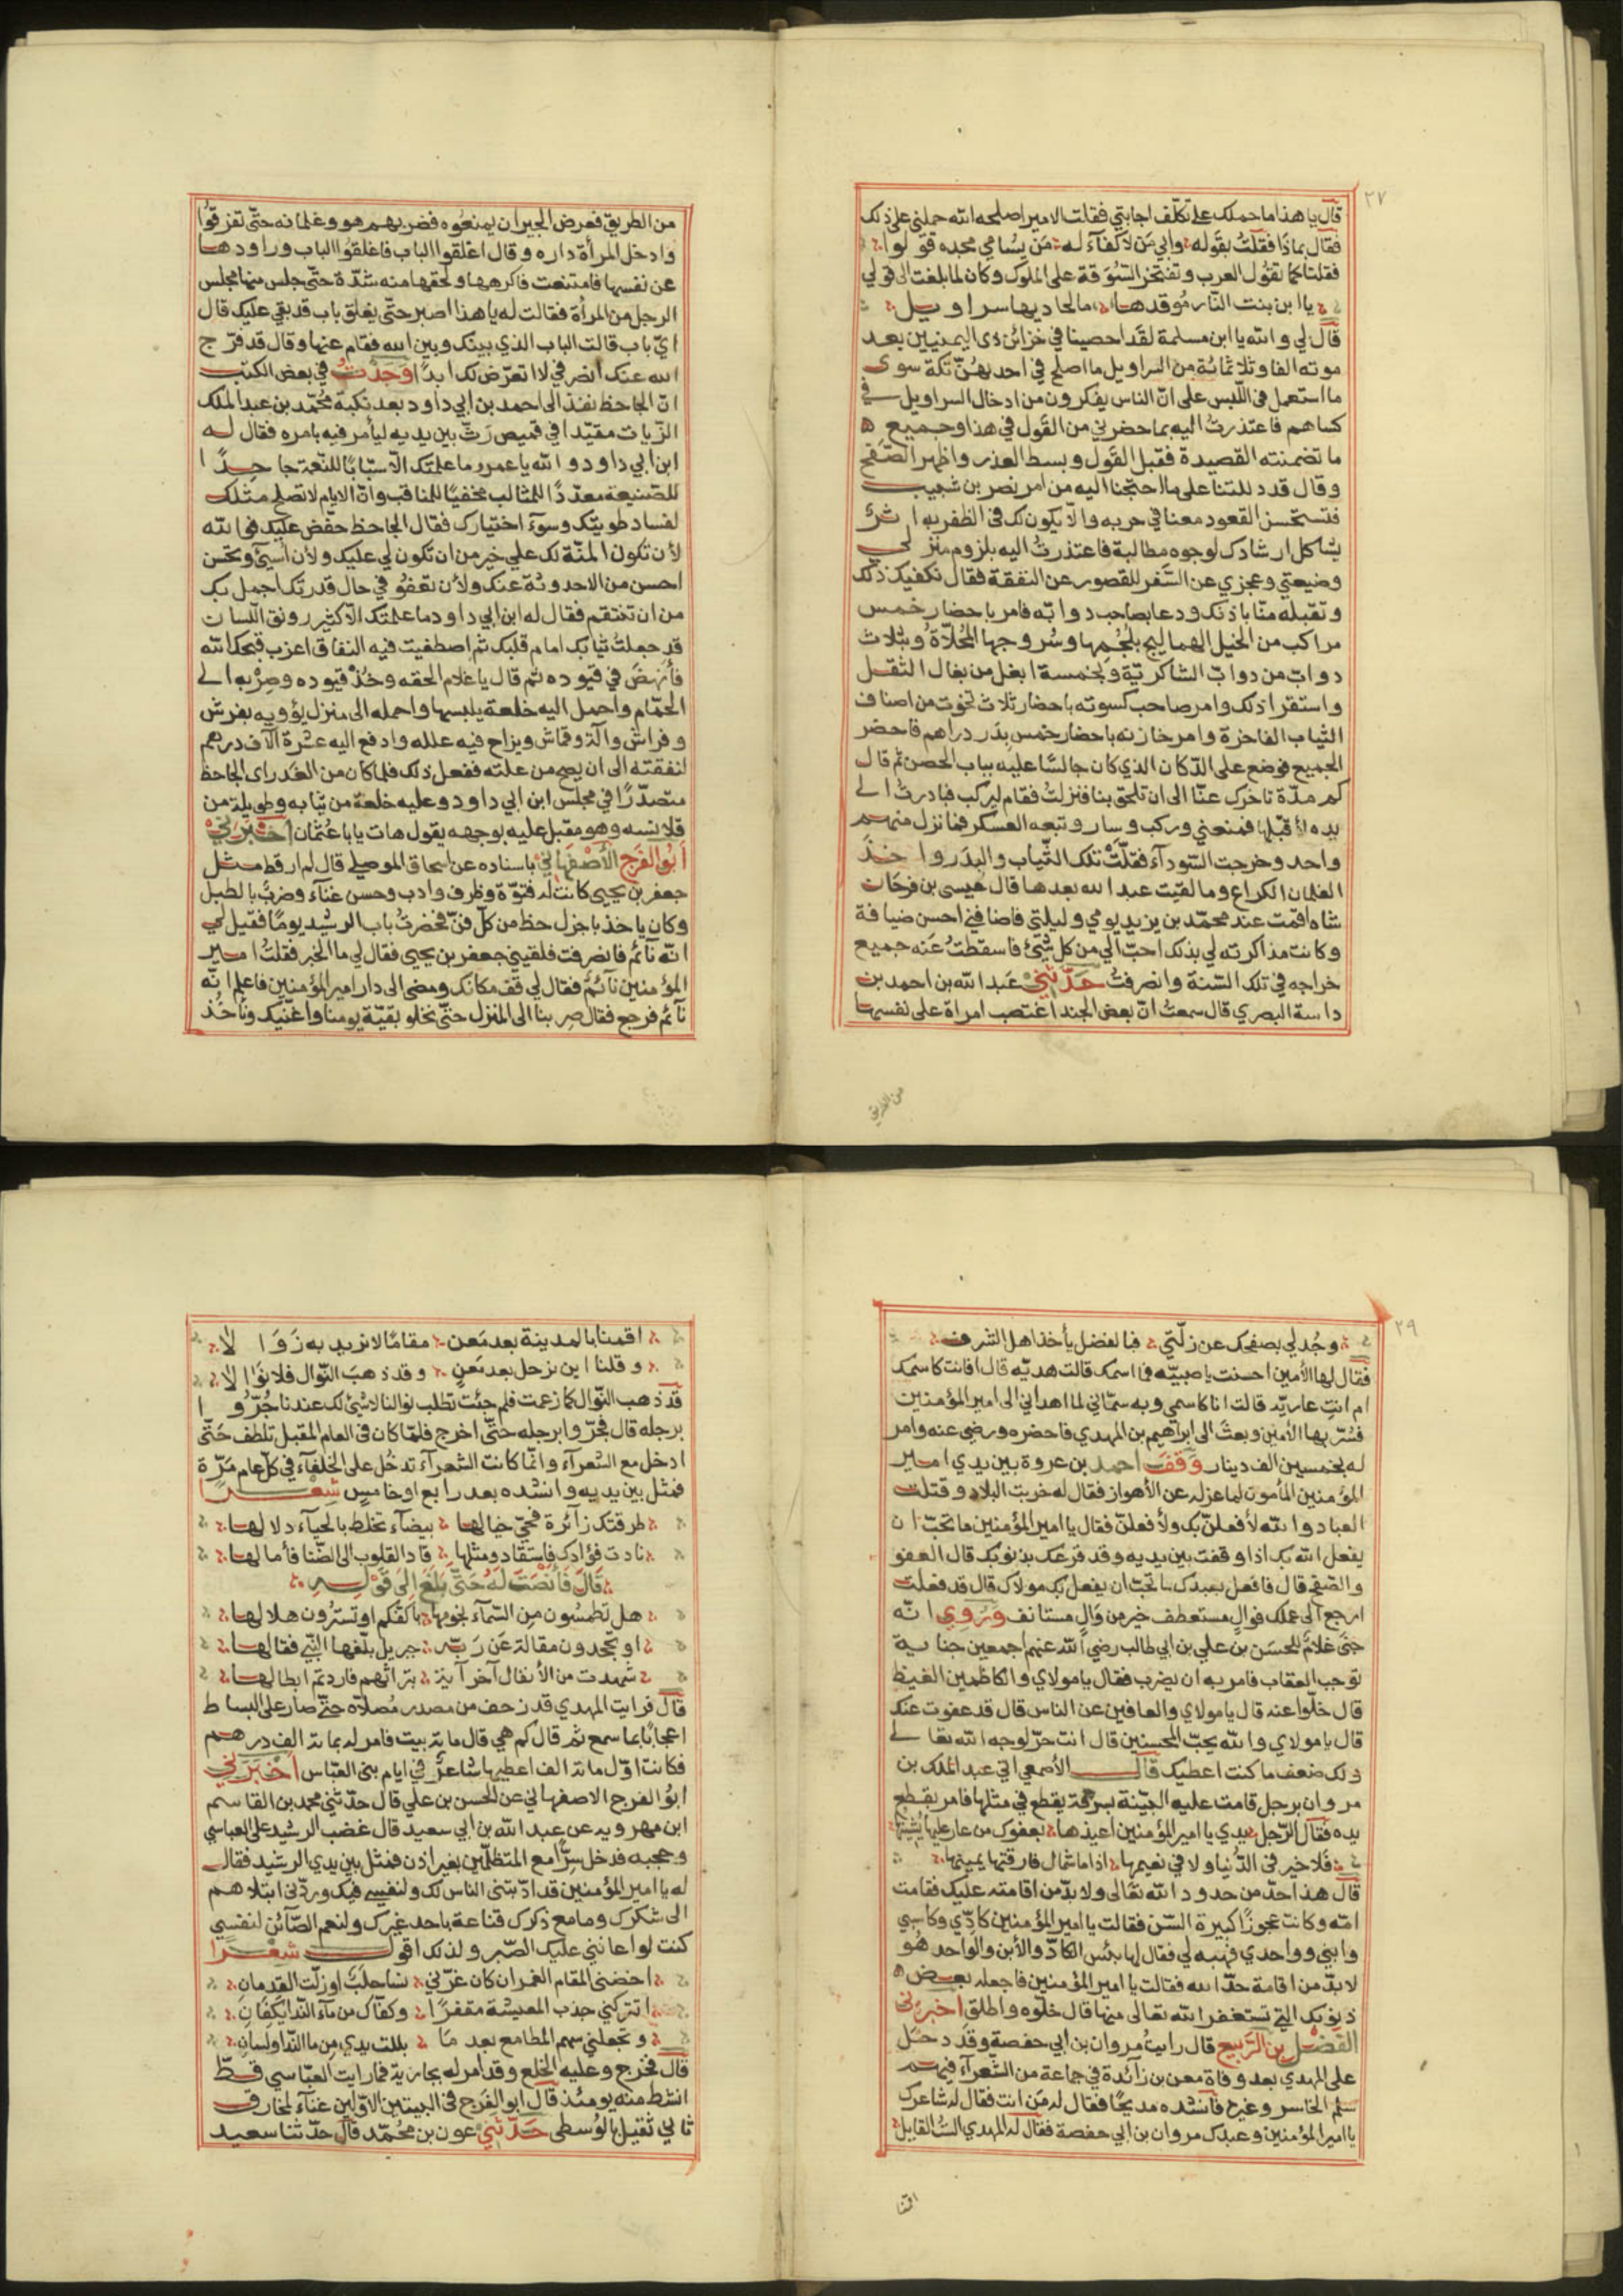 ٢٧
قال يا هذا ما حملك على تكلّف اجابتي فقلت الامير اصلحه الله حملني على ذلك
فقال بماذا فقلتُ بقوله وابي مَن لا كفآءَ له مَن يسامي مجده قولوا
فقلنا كما تقول العرب وتفتخر السُوقة على الملوك وكان لما بلغت الى قولي
يا ابن بنت النّار مُوقدها ما لحاديها سراويل
قال لي والله يا ابن مسلمة لقد احصينا في خزائن ذى اليمينين بعد
موته الفا وثلاثمائة من السراويل ما اصلح في احدهنّ تكة سوى
ما استعمل في اللّبس على انّ الناس يفكرون من ادخال السراويل في
كساهم فاعتذرتُ اليه بما حضرني من القول في هذا وجميع
ما تضمنته القصيدة فقبل القول وبسط العذر واظهر الصَفح
وقال قد دللتنا على ما احتجنا اليه من امر نصر بن شبيب
فتستحسن القعود معنا في حربه والّا يكون لك في الظفر به اثرٌ
يشاكل ارشادك لوجوه مطالبة فاعتذرتُ اليه بلزوم منزلي
وضيعتي وعجزي عن السّفر للقصور عن النفقة فقال نكفيك ذلك
وتقبله منّا باذنك ودعا بصاحب دوابّه فامر باحضار خمس
مراكب من الخيل الهماليج بلُجُمِها وسُروجها المحُلاّة وبثلاث
دوابّ من دوابّ الشاكريّة وبخمسة ابغل من بغال الثقل
واستقر اذلك وامر صاحب كسوته باحضار ثلاث تخوت من اصناف
الثياب الفاخرة وامر خازنه باحضار خمس بِدَر دراهم فاحضر
الجميع فوضع على الدّكان الذي كان جالسًا عليه بباب الحصن ثم قال
كم مدّة تاخرك عنّا الى ان تلحق بنا فنزلتُ فقام ليركب فبادرتُ الى
يده لأقبّلها فمنعني وركب وسار وتبعه العسكر فما نزل منهم
واحد وخرجت السّودآء فقلّت تلك الثّياب والبدَر واخذ
الغلمان الكراع وما لقيت عبد الله بعدها قال عيسى بن فرخان
شاه اقمت عند محمّد بن يزيد يومي وليلتي فاضافني احسن ضيافة
وكانت مذاكرته لي بذلك احبّ الي من كل شيئ فاسقطتُ عَنه جميع
خراجه في تلك السّنة وانصرفتُ حَدّثنيْ عَبد الله بن احمد بن
داسة البصري قال سمعتُ انّ بعض الجند اغتصب امراة على نفسها
من الطريق
من الطريق فعرض الجيران يمنعُوه فضربهم هو وغلمانه حتّى تفرقوُا
وادخل المرأة داره وقال اغلقوا الباب فاغلقوا الباب وراودها
عن نفسها فامتنعت فاكرهها ولحقها منه شدّة حتّى جلس منها مجلس
الرجل من المرأة فقالت له يا هذا اصبر حتّى يغلق باب قد بقي عليك قال
ايّ باب قالت الباب الذي بينك وبين الله فقام عنها وقال قد فرّج
الله عنك انصرفي لا اتعرّض لك ابدًا وَجَدْتُ في بعض الكتب
انّ الجاحظ نفذ الى احمد بن ابي داود بعد نكبة محُمّد بن عبد الملك
الزّيات مقيّدا في قميص رَثّ بين يديه ليأمر فيه بامره فقال له
ابن ابي داود والله يا عمرو ما علمتك الاّ سبّابًا للنّعمة جاحِدًا
للصّنيعة معدّدًا للمثالب مخفيًا للمناقب وانّ الايام لا تصلح مثلك
لفساد طويتك وسوء اختيارك فقال الجاحظ خفّض عليك فوالله
لأن تكون المنّة لك علي خير من ان تكون لي عليك ولأن اسيئ وتحسن
احسن من الاحدوثة عنك ولأن تعفوُ في حال قدرتك اجمل بك
من ان تنتقم فقال له ابن ابي داود ما علمتك الاّ كثير رونق اللّسان
قد جعلتُ ثيابك امام قلبك ثم اصطفيت فيه النفاق اعزب قبحك الله
فأُنهضَ في قيوده ثم قال يا غلام الحقه وخُذ قيوده وصِرْ به الى
الحمّام واحمل اليه خلعة يلبسها واحمله الى منزل يؤويه بفرش
وفراش وآلة وقماش ويزاح فيه علله وادفع اليه عشرة آلاف درهم
لنفقته الى ان يصح من علته ففعل ذلك فلما كان من الغد راى الجاحظ
متصدّرًا في مجلس ابن ابي داود وعليه خلعة من ثيابه وطويلة من
قلانسه وهو مقبل عليه بوجهه يقول هات يابا عثمان أخْبَرَنيْ
أبُو الفرَج الأصْفَهاني باسناده عن اسحاق الموصلي قال لم ار قط مثل
جعفر بن يحيى كانت له فتوّة وظرف وادب وحسن غنآء وضربٌ بالطبل
وكان ياخذ باجزل حظ من كلّ فنّ فحضرتُ باب الرشيد يومًا فقيل لي
انّه نآئم فانصرفت فلقيني جعفر بن يحيى فقال لي ما الخبر فقلتُ امير
المؤمنين نآئمٌ فقال لي قف مكانك ومضى الى دار امير المؤمنين فاعلم انّه
نآئم فرجع فقال صِر بنا الى المنزل حتّى نخلو بقيّة يومنا واغنيك وناخُذ
٢٩
وجُد لي بصفحك عن زلّتي فبالفضل يأخذ اهل الشرف
فقال لها الأمين احسنت يا صبيّه فما اسمك قالت هديّه قال افانت كاسمك
ام انتِ عاريّه قالت انا كاسمي وبه سمّاني لما اهداني الى امير المؤمنين
فسُرّ بها الأمين وبعثَ الى ابرٰهيم بن المهدي فاحضره ورضي عنه وامر
له بخمسين الف دينار وَقَفَ احمد بن عروة بين يدي امير
المؤمنين المأمون لما عزله عن الأهواز فقال له خربت البلاد وقتلت
العباد والله لأفعلنّ بك ولأفعلنّ فقال يا امير المؤمنين ما تحبّ ان
يفعل الله بك اذا وقفت بين يديه وقد قرعك بذنوبك قال العفو
والصّفح قال فافعل بعبدك ما تحبّ ان يفعل بك مولاك قال قد فعلت
ارجع الى عملك فوالٍ مستعطف خير من وَالٍ مستانف وَرُوِي انّه
جنَى غلامٌ للحسَن بن علي بن ابي طالب رضي الله عنهم اجمعين جناية
توجب العقاب فامر به ان يضرب فقال يا مولاي والكاظمين الغيظ
قال خلّوا عنه قال يا مولاي والعافين عن الناس قال قد عفوت عنك
قال يا مولاي والله يحبّ المحسنين قال انت حرّ لوجه الله تعالى
ولك ضعف ما كنت اعطيك قال الأصمعي اتي عبد الملك بن
مروان برجل قامت عليه البيّنة بسرقة يقطع في مثلها فامر بقطع
يده فقال الرّجل يدي يا امير المؤمنين اعيذها بعفوك من عار عليها يُشينها
فلا خير في الدُّنيا ولا في نعيمها اذا ما شمال فارقتها يمينها
قال هذا حدّ من حدود الله تعالى ولا بدّ من اقامته عليك فقامت
امّه وكانت عجوزًا كبيرة السّن فقالت يا امير المؤمنين كادّي وكاسبي
وابني وواحدي فهبه لي فقال لها بئس الكادّ والأبن والواحد هُو
لا بدّ من اقامة حدّ الله فقالت يا امير المؤمنين فاجعله بعض
ذنوبك التي تستغفر الله تعالى منها قال خلّوه واطلق اخبرني
الفضْل بن الرّبيع قال رايتُ مروان بن ابي حفصة وقد دخَل
على المهدي بعد وفاة معن بن زآئدة في جماعة من الشّعرآء فيهم
سلم الخاسر وغيره فانشده مديحًا فقال له مَن انت فقال له شاعرك
يا امير المؤمنين وعبدك مروان بن ابي حفصة فقال له المهدي الستَ القايل
اقمنا
اقمنا بالمدينة بعد مَعن مقامًا لا نريد به زَوَالا
وقلنا اين نرحل بعد مَعنٍ وقد ذهبَ النّوال فلا نَوَالا
قد ذهب النّوال كما زعمت فلم جئت تطلب نوالنا لا شيئ لك عندنا جُرّوُا
برجله قال فجرّوا برجله حتّى اخرج فلمّا كان في العام المقبل تلطف حَتّى
ادخل مع الشعرآء وانّما كانت الشعرآء تدخُل على الخلفآء في كلّ عام مَرّة
فمثل بين يديه وانشده بعد رابع او خامسٍ شِعْرًا
طرقتك زآئرة فحيّ خيالها بيضآء تخلط بالحيآء دلالها
نادت فؤادك فاستقاد ومثلها قاد القلوب الى الضّنا فأمالها
قَالَ فَأنْصَتَ لَهُ حَتّى بَلَغَ اِلَى قَوْلِهِ
هل تطمسُون مِن السّمآء نجومها باكفّكم او تسترون هلالها
او تجحدون مقالة عَن رَبّه جبريل بلّغها النبّي فقالها
شهدت من الأنفال آخر آيةٍ بتراثهم فاردتم ابطالها
قال فرايت المهدي قد زحف من مصدر مُصلاّه حتّى صار على البساط
اعجابًا بما سمع ثم قال كم هي قال مائة بيت فامر له بمائة الف درهم
فكانت اوّل مائة الف اعطيها شاعرٌ في ايام بني العبّاس اخْبَرَني
ابوُ الفرج الاصفهاني عن الحسن بن علي قال حدّثني محمد بن القاسم
ابن مهرويه عن عبد الله بن ابي سعيد قال غضب الرشيد على العباسي
وحجبه فدخل سِرًّا مع المتظلّمين بغير اذن فمثل بين يدي الرشيد فقال
له يا امير المؤمنين قد ادّبتني الناس لك ولنفسي فيك وردّني ابتلاهم
الى شكرك وما مع ذكرك قناعة باحد غيرك ولنعم الصّآئن لنفسي
كنت لو اعانني عليك الصّبر ولذلك اقول شِعْرًا
اخضني المقام الغمر ان كان غرّني سَنا خلّبٌ او زلّت القدمان
اتتركني جدب المعيشة مقفرًا وكفّاك من مآء النّدا يكفان
وتجعلني سهم المطامع بعد ما بللت يدي من ما النّدا ولسان
قال فخرج وعليه الخلع وقد امر له بجايزة فما رايت العبّاسي قطّ
انشط منه يومئذ قال ابو الفرج في البيتين الاوّلين غنآء لمخارق
ثاني ثقيل بالوُسطى حَدّثَنيْ عون بن محُمّد قال حدّثنا سعيد